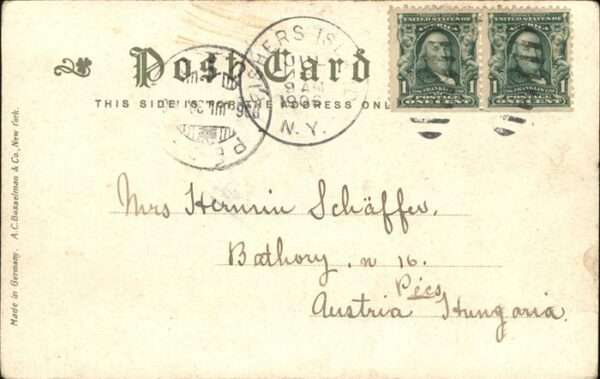 Post Card
THIS SIDE IS FOR THE ADDRESS ONL
FISHERS ISL D
9 AM
N.Y.
PÉCS
UNITED STATES OF AMERICA
FRANKLIN
1 POSTAGE 1
ONE CENT
UNITED STATES OF AMERICA
FRANKLIN
1 POSTAGE 1
ONE CENT
Mrs Hermin Schäffer.
Bathory. n 16.
Pécs
Austria Hungaria.
Made in Germany. A.C. Bosselman & Co., New York.